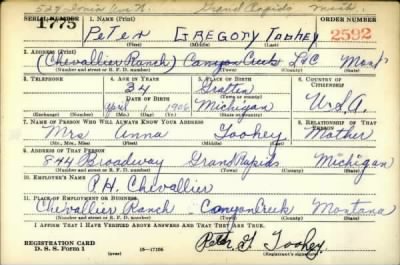 529 Grand Rapids Mich.
SERIAL NUMBER 1. NAME (Print) ORDER NUMBER
1775 Peter GREGORY TOOHEY 2592
(First) (Middle) (Last)
2. ADDRESS (Print)
(Chevallier Ranch) Canyon Creek L&C Mont
(Number and street or R. F. D. number) (Town) (County) (State)
3. TELEPHONE 4. AGE IN YEARS 5. PLACE OF BIRTH 6. COUNTRY OF CITIZENSHIP
34 Grattan
DATE OF BIRTH (Town or county)
1 1906 Michigan U.S.A.
(Exchange) (Number) (Mo.) (Day) (Yr.) (State or country)
7. NAME OF PERSON WHO WILL ALWAYS KNOW YOUR ADDRESS 8. RELATIONSHIP OF THAT PERSON
Mrs Anna Toohey Mother
(Mr., Mrs., Miss) (First) (Middle) (Last)
9. ADDRESS OF THAT PERSON
844 Broadway Grand Rapids Michigan
(Number and street or R. F. D. number) (Town) (County) (State)
10. EMPLOYER'S NAME
P.H. Chevallier
11. PLACE OF EMPLOYMENT OR BUSINESS
Chevallier Ranch Canyon Creek Montana
(Number and street or R. F. D. number) (Town) (County) (State)
I AFFIRM THAT I HAVE VERIFIED ABOVE ANSWERS AND THAT THEY ARE TRUE.
REGISTRATION CARD
D. S. S. Form 1 (over) 16-17105 Peter G Toohey
(Registrant's signature)